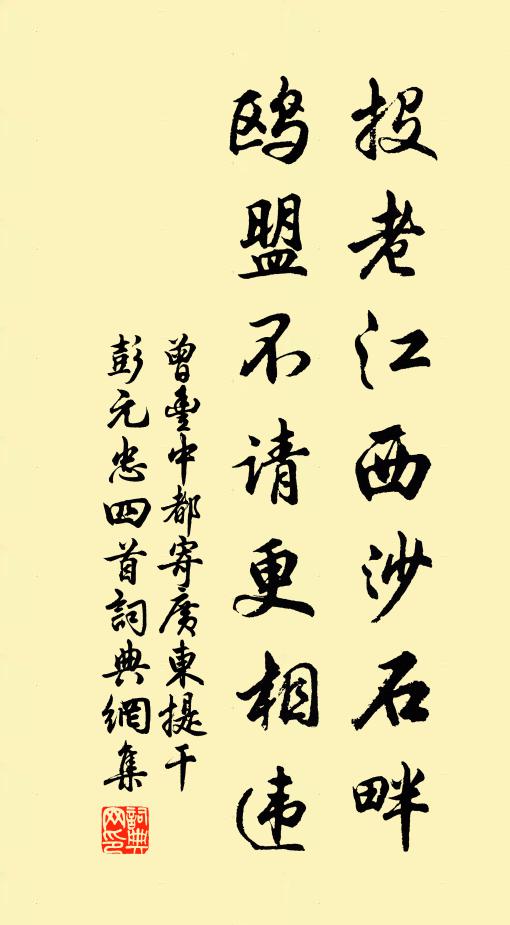 投老江西沙石畔
鸥盟不请更相违
曾豊中都寄廣東提干
彭元忠四首詞典網集
詞典
网印